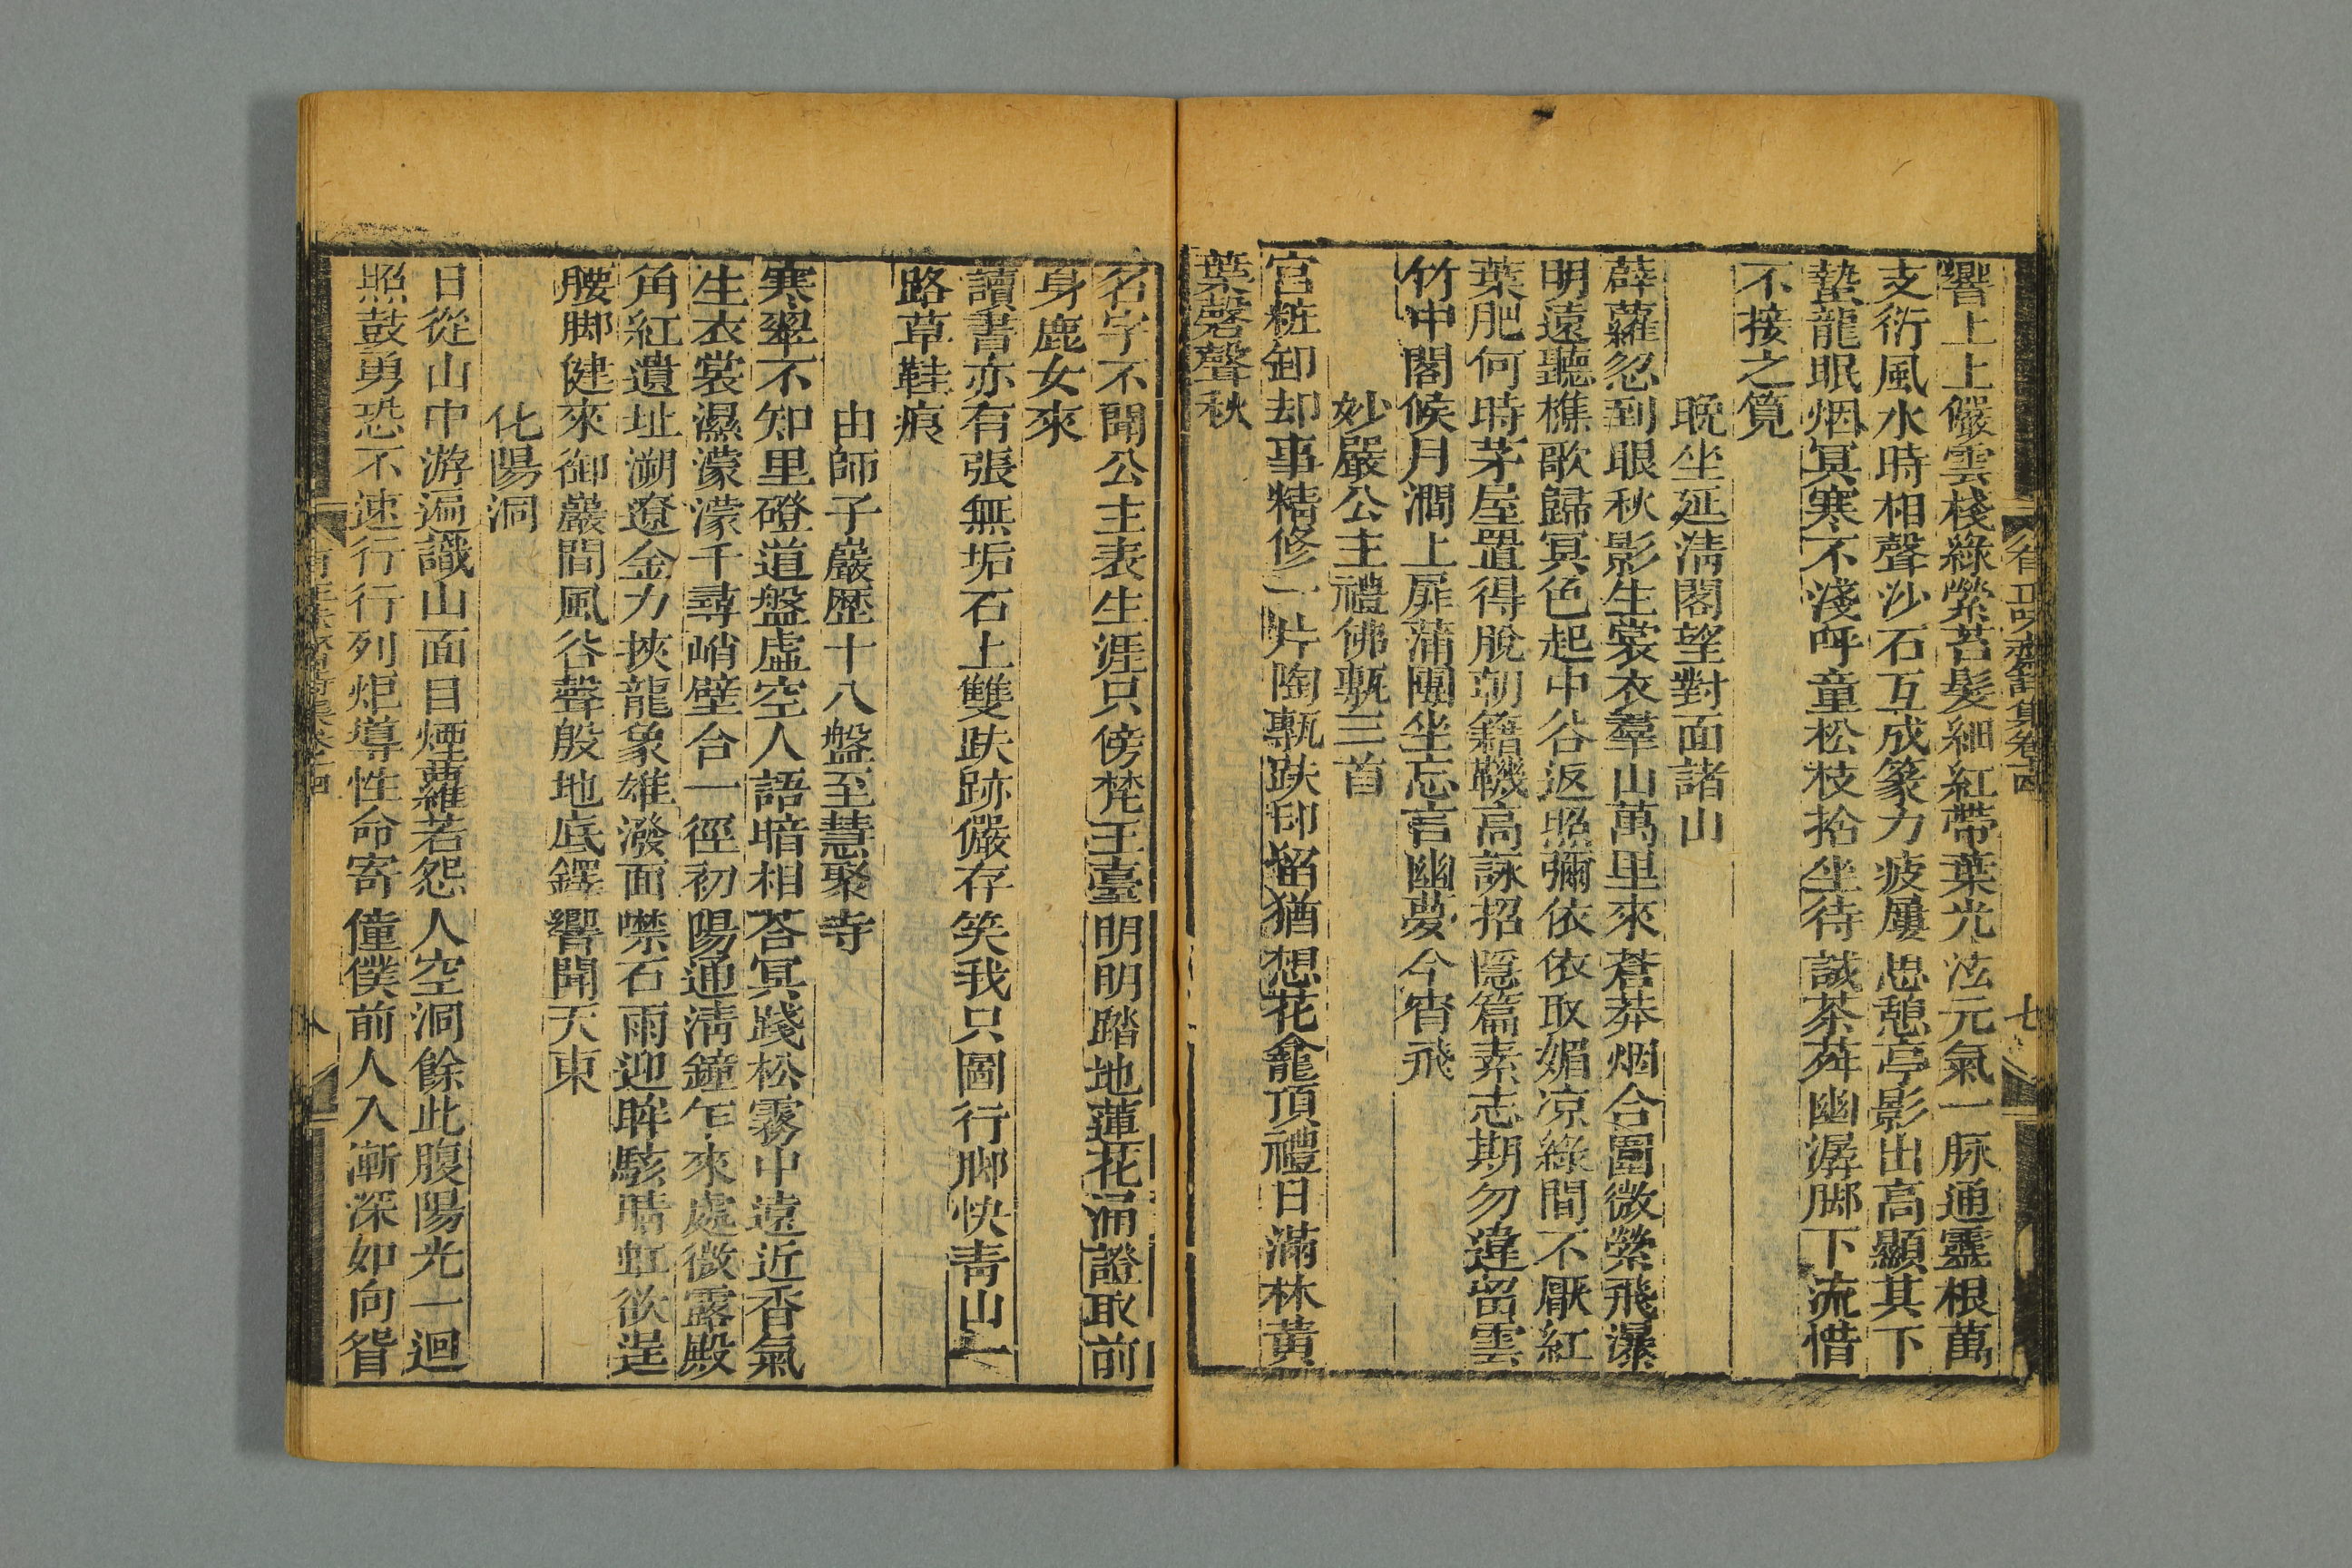 響上上儼雲棧綠縈苔髮細紅帶葉光泫元氣一脉通靈根萬
支衍風水時相聲沙石互成篆力疲屢思憩亭影出高顯其下
蟄龍眠烟冥寒不淺呼童松枝拾坐待誠茶荈幽潺脚下流惜
不接之筧
晚坐延淸閣望對面諸山
薜蘿忽到眼秋影生裳衣羣山萬里來蒼莽烟合圍微縈飛瀑
明遠聽樵歌歸冥色起中谷返照彌依依取媚凉綠間不厭紅
葉肥何時茅屋置得脫朝籍鞿高詠招隱篇素志期勿違留雲
竹中閣候月澗上扉蒲團坐忘言幽夢今宵飛
妙嚴公主禮佛甎三首
宫粧卸却事精修一片陶甎趺印留猶想花龕頂禮日滿林黃
葉磬聲秋
七
名字不聞公主表生涯只傍梵王臺明明踏地蓮花涌證取前
身鹿女來
讀書亦有張無垢石上雙趺跡儼存笑我只圖行脚快靑山一
路草鞋痕
由師子巖歷十八盤至慧聚寺
寒翠不知里磴道盤虛空人語暗相荅冥踐松霧中遠近香氣
生衣裳濕濛濛千尋峭壁合一徑初陽通淸鐘乍來處微露殿
角紅遺址溯遼金力挾龍象雄潑面噤石雨迎眸駭晴虹欲逞
腰脚健來御巖間風谷聲殷地底鐸響聞天東
化陽洞
日從山中游遍識山面目煙蘿若怨人空洞餘此腹陽光一迴
照鼓勇恐不速行行列炬導性命寄僮僕前人入漸深如向眢
八